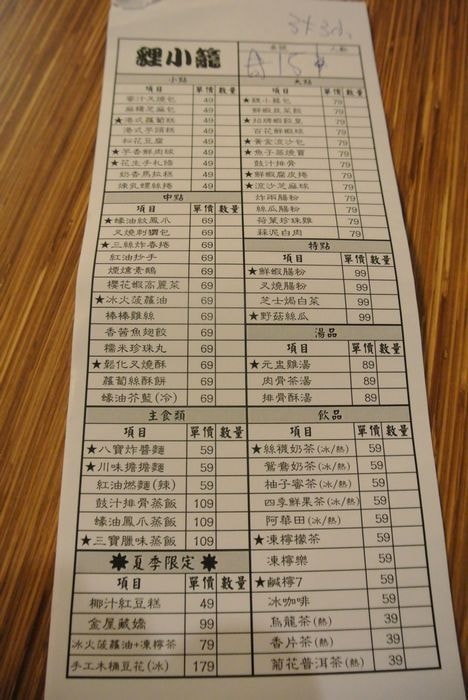 貍小籠
桌號
人數
小點
項目 單價 數量
蜜汁叉燒包 49
麻糬芝麻包 49
★港式蘿蔔糕 49
港式芋頭糕 49
松花豆腐 49
★芋香鮮肉球 49
★花生手札捲 49
奶香馬拉糕 49
煉乳螺絲捲 49
中點
項目 單價 數量
★蠔油紋鳳爪 69
叉燒刈謂包 69
★三絲炸春捲 69
紅油抄手 69
煙燻素鵝 69
櫻花蝦高麗菜 69
★冰火菠蘿油 69
棒棒雞絲 69
香茜魚翅餃 69
糯米珍珠丸 69
★鬆化叉燒酥 69
蘿蔔絲酥餅 69
蠔油芥藍(冷) 69
主食類
項目 單價 數量
★八寶炸醬麵 59
★川味擔擔麵 59
紅油燃麵(辣) 59
鼓汁排骨蒸飯 109
蠔油鳳爪蒸飯 109
★三寶臘味蒸飯 109
夏季限定
項目 單價 數量
椰汁紅豆糕 49
金屋藏嬌 99
冰火菠蘿油+凍檸茶 79
手工木桶豆花(冰) 179
大點
項目 單價 數量
★貍小籠包 79
鮮蝦韭菜餃 79
★招牌蝦餃皇 79
百花鮮蝦球 79
★黃金流沙包 79
★魚子蒸燒賣 79
鼓汁排骨 79
★鮮蝦腐皮捲 79
★流沙芝麻球 79
炸兩腸粉 79
絲瓜腸粉 79
荷葉珍珠雞 79
蒜泥白肉 79
特點
項目 單價 數量
★鮮蝦腸粉 99
叉燒腸粉 99
芝士焗白菜 99
★野菇絲瓜 99
湯品
項目 單價 數量
★元盅雞湯 89
肉骨茶湯 89
排骨酥湯 89
飲品
項目 單價 數量
★絲襪奶茶(冰/熱) 59
鴛鴦奶茶(冰/熱) 59
柚子蜜茶(冰/熱) 59
四季鮮果茶(冰/熱) 59
阿華田(冰/熱) 59
★凍檸檬茶 59
凍檸樂 59
★鹹檸7 59
冰咖啡 59
烏龍茶(熱) 39
香片茶(熱) 39
菊花普洱茶(熱) 39